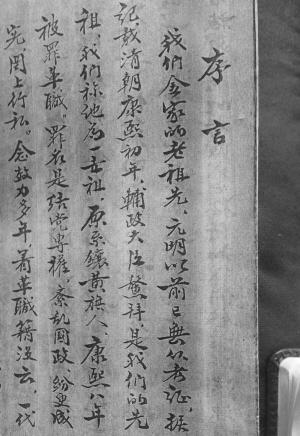 序言
我们金家的老祖先，元明以前已无从考证，据
记载清朝康熙初年，辅政大臣鳌拜，是我们的先
祖，我们称他为一世祖，原系镶黄旗人，康熙八年
被罪革职。罪名是结党专权，紊乱国政，纷更成
宪，罔上行私。念效力多年，着革职籍没云，一代